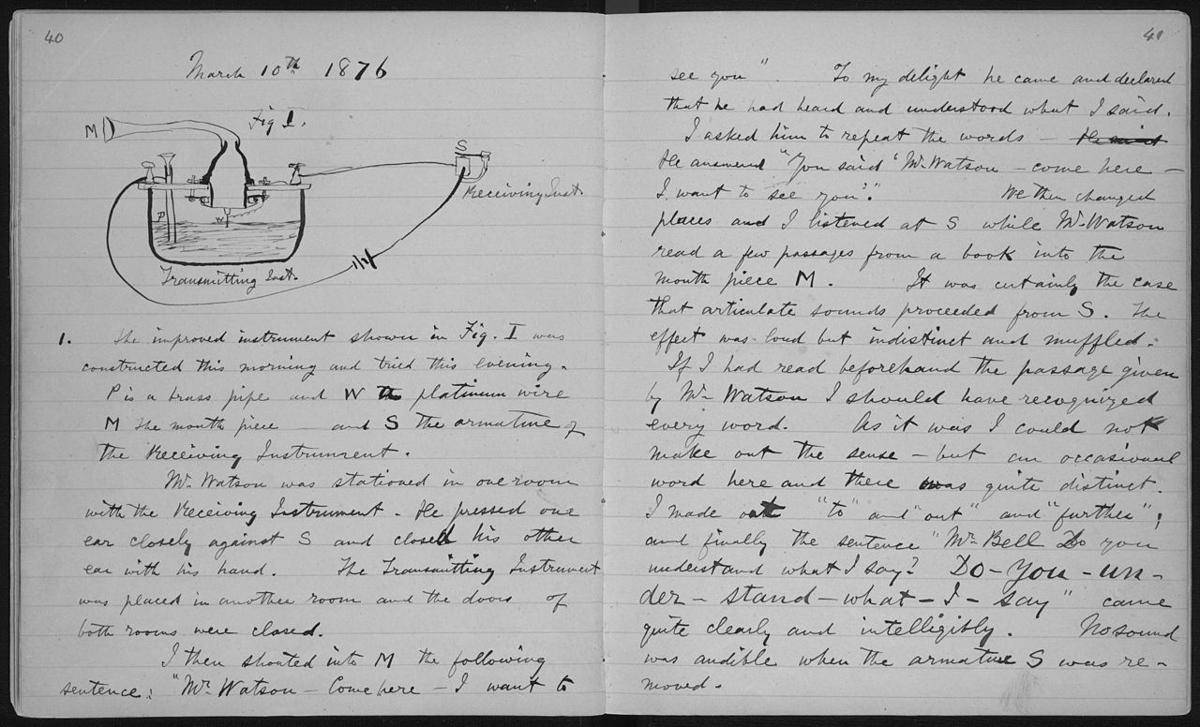 40
March 10th 1876
Fig 1.
M
S
Receiving Inst.
P
W
Transmitting Inst.
1. The improved instrument shown in Fig. I was
constructed this morning and tried this evening.
P is a brass pipe and W the platinum wire
M the mouth piece and S the armature of
the Receiving Instrument.
Mr. Watson was stationed in one room
with the Receiving Instrument. He pressed one
ear closely against S and closed his other
ear with his hand. The Transmitting Instrument
was placed in another room and the doors of
both rooms were closed.
I then shouted into M the following
sentence: "Mr. Watson – Come here – I want to
41
see you". To my delight he came and declared
that he had heard and understood what I said.
I asked him to repeat the words –
He answered "You said 'Mr. Watson – come here –
I want to see you'." We then changed
places and I listened at S while Mr. Watson
read a few passages from a book into the
mouth piece M. It was certainly the case
that articulate sounds proceeded from S. The
effect was loud but indistinct and muffled.
If I had read beforehand the passage given
by Mr. Watson I should have recognized
every word. As it was I could not
make out the sense – but an occasional
word here and there was quite distinct.
I made out "to" and "out" and "further";
and finally the sentence "Mr. Bell Do you
understand what I say? Do – you – un –
der – stand – what – I – say" came
quite clearly and intelligibly. No sound
was audible when the armature S was re –
moved.